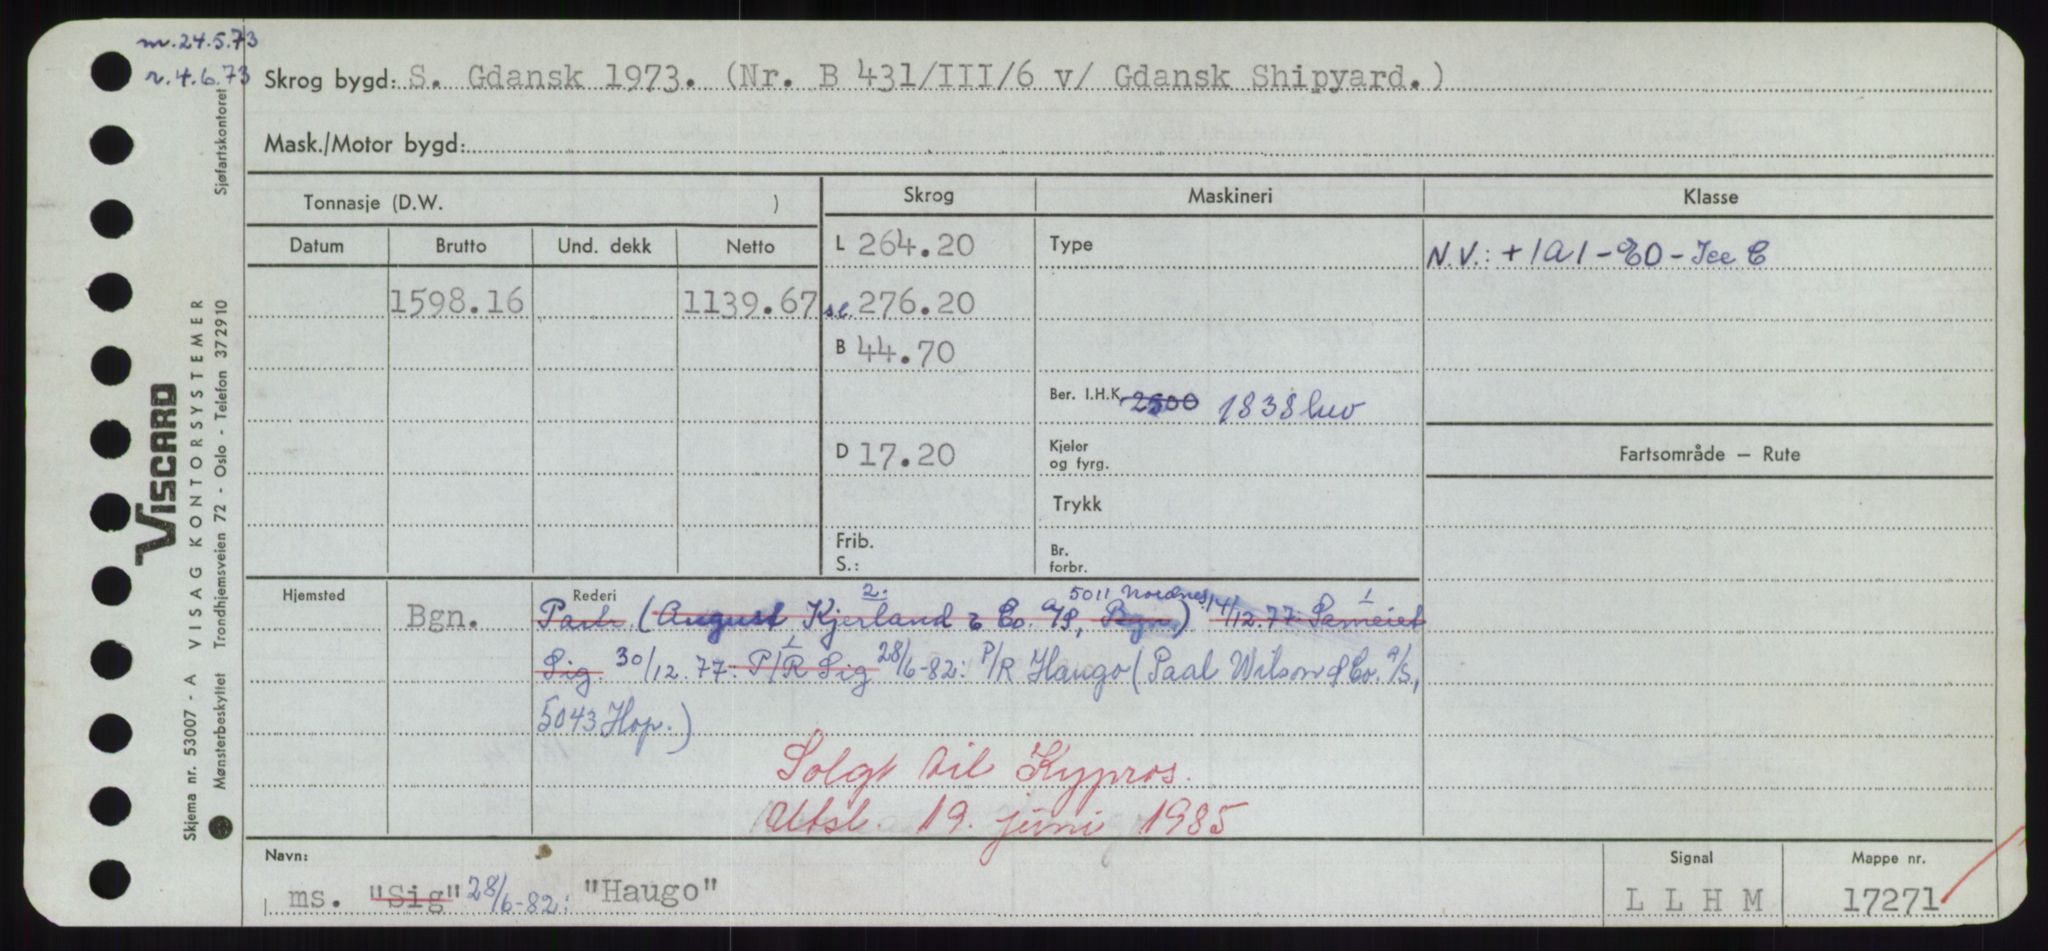 m.24.5.73
r.4.6.73
Skrog bygd: S. Gdansk 1973. (Nr. B 431/III/6 v/ Gdansk Shipyard.)
Mask./Motor bygd:
Tonnasje (D.W. )
Skrog
Maskineri
Klasse
Datum
Brutto
Und. dekk
Netto
L 264.20
Type
N.V.: +1A1-EO-Ice C
1598.16
1139.67
sl. 276.20
B 44.70
Ber. I.H.K. 2500 1838 kw
D 17.20
Kjeler
og fyrg.
Fartsområde — Rute
Trykk
Frib.
S.:
Br.
forbr.
Hjemsted
Bgn.
Rederi
2.
5011 Nordnes
1
Partr. (August Kjerland & Co. A/S, Bgn.) 14/12.77: Sameiet
1
Sig. 30/12.77: P/R Sig 28/6-82: P/R Haugo (Paal Wilson & Co. A/S,
5043 Hop.)
Solgt til Kypros.
Utsl. 19. juni 1985
Navn:
ms. "Sig" 28/6-82: "Haugo"
Signal
LLHM
Mappe nr.
17271
VISCARD
VISAG KONTORSYSTEMER
Skjema nr. 53007 - A
Mønsterbeskyttet Trondhjemsveien 72 - Oslo - Telefon 372910
Sjøfartskontoret